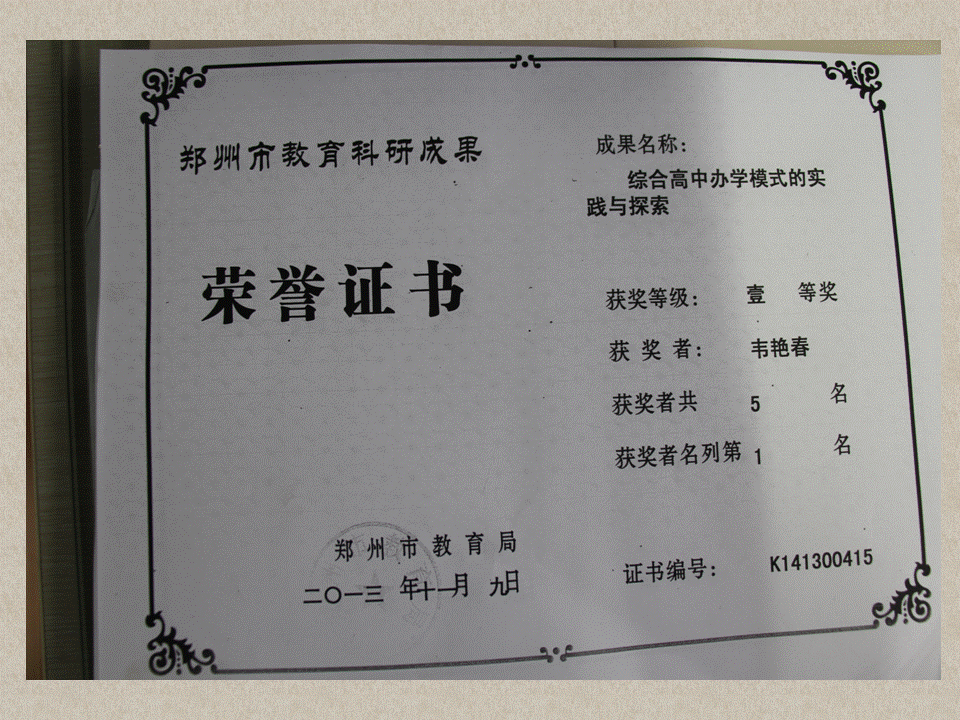 郑州市教育科研成果
荣誉证书
郑州市教育局
二〇一三年十一月九日
成果名称：
综合高中办学模式的实
践与探索
获奖等级： 壹 等奖
获奖者： 韦艳春
获奖者共 5 名
获奖者名列第 1 名
证书编号： K141300415